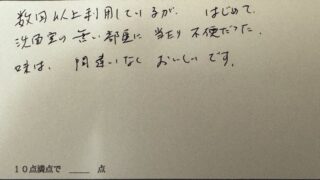 数回以上利用しているが、はじめて、
洗面室の無い部屋に当たり不便だった。
味は、間違いなくおいしいです。
10点満点で ____ 点